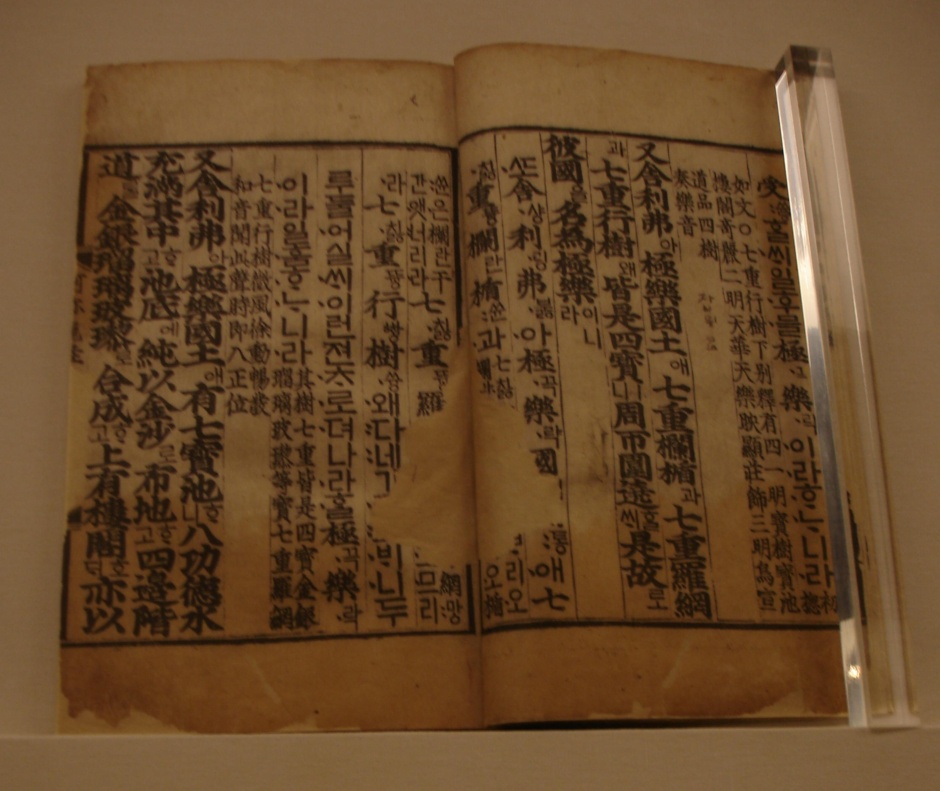 受ᄒᆞᆯᄊᆡ일후믈極樂락이라ᄒᆞᄂᆞ니라
如文○七重行樹下別釋有四一明寶樹寶池
樓閣奇麗二明天華天樂映顯莊飾三明鳥宣
道品四樹
奏樂音
又舍利弗아極樂國土애七重欄楯과七重羅網
과七重行樹왜皆是四寶ㅣ니周帀圍遶ᄒᆞᆯᄊᆡ是故로
彼國을名爲極樂이니라
ᄯᅩ舍샹利링弗붏아極끅樂락國애七
칧重뜡欄란楯쓘과七칧
쓘은欄란干간앳너리라七칧重뜡羅網망
라七칧重뜡行ᅘᅢᆼ樹쓩왜다네비니두
루둘어실ᄊᆡ이런젼ᄎᆞ로뎌나라ᄒᆞᆯ極끅樂락
이라일훔ᄒᆞᄂᆞ니라其樹七重皆是四寶金銀
瑠璃玻瓈等寶七重羅網
七重行樹微風徐動暢發
和音聞此聲時即入正位
又舍利弗아極樂國土애有七寶池ᄒᆞ니八功德水
充滿其中ᄒᆞ고池底예純以金沙로布地ᄒᆞ고四邊階
道ᄅᆞᆯ金銀瑠璃玻瓈로合成ᄒᆞ고上有樓閣호ᄃᆡ亦以